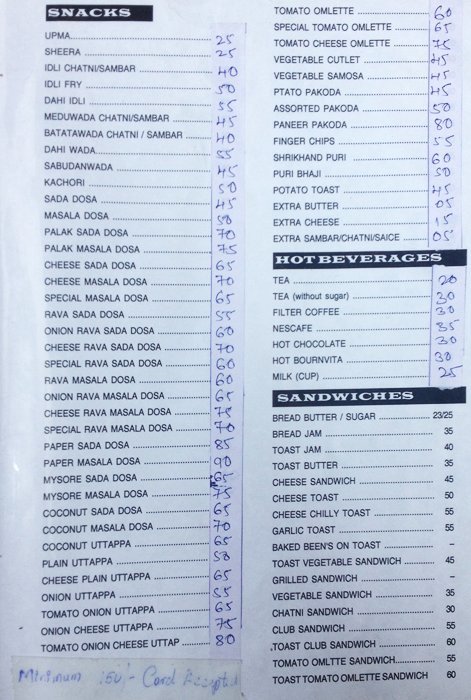 SNACKS
UPMA 25
SHEERA 25
IDLI CHATNI/SAMBAR 40
IDLI FRY 50
DAHI IDLI 55
MEDUWADA CHATNI/SAMBAR 45
BATATAWADA CHATNI / SAMBAR 40
DAHI WADA 55
SABUDANWADA 45
KACHORI 50
SADA DOSA 45
MASALA DOSA 50
PALAK SADA DOSA 70
PALAK MASALA DOSA 75
CHEESE SADA DOSA 65
CHEESE MASALA DOSA 70
SPECIAL MASALA DOSA 65
RAVA SADA DOSA 55
ONION RAVA SADA DOSA 60
CHEESE RAVA SADA DOSA 70
SPECIAL RAVA SADA DOSA 60
RAVA MASALA DOSA 60
ONION RAVA MASALA DOSA 65
CHEESE RAVA MASALA DOSA 75
SPECIAL RAVA MASALA DOSA 70
PAPER SADA DOSA 85
PAPER MASALA DOSA 90
MYSORE SADA DOSA 65
MYSORE MASALA DOSA 75
COCONUT SADA DOSA 65
COCONUT MASALA DOSA 70
COCONUT UTTAPPA 65
PLAIN UTTAPPA 50
CHEESE PLAIN UTTAPPA 65
ONION UTTAPPA 55
TOMATO ONION UTTAPPA 65
ONION CHEESE UTTAPPA 75
TOMATO ONION CHEESE UTTAP 80
Minimum 150/- Card Accepted
TOMATO OMLETTE 60
SPECIAL TOMATO OMLETTE 65
TOMATO CHEESE OMLETTE 75
VEGETABLE CUTLET 45
VEGETABLE SAMOSA 45
PTATO PAKODA 45
ASSORTED PAKODA 50
PANEER PAKODA 80
FINGER CHIPS 55
SHRIKHAND PURI 60
PURI BHAJI 50
POTATO TOAST 45
EXTRA BUTTER 05
EXTRA CHEESE 15
EXTRA SAMBAR/CHATNI/SAICE 05
HOT BEVERAGES
TEA 20
TEA (without sugar) 30
FILTER COFFEE 30
NESCAFE 35
HOT CHOCOLATE 30
HOT BOURNVITA 30
MILK (CUP) 25
SANDWICHES
BREAD BUTTER / SUGAR 23/25
BREAD JAM 35
TOAST JAM 40
TOAST BUTTER 35
CHEESE SANDWICH 45
CHEESE TOAST 50
CHEESE CHILLY TOAST 55
GARLIC TOAST 55
BAKED BEEN'S ON TOAST –
TOAST VEGETABLE SANDWICH 45
GRILLED SANDWICH –
VEGETABLE SANDWICH 35
CHATNI SANDWICH 30
CLUB SANDWICH 55
TOAST CLUB SANDWICH 60
TOMATO OMLTTE SANDWICH 55
TOAST TOMATO OMLETTE SANDWICH 60